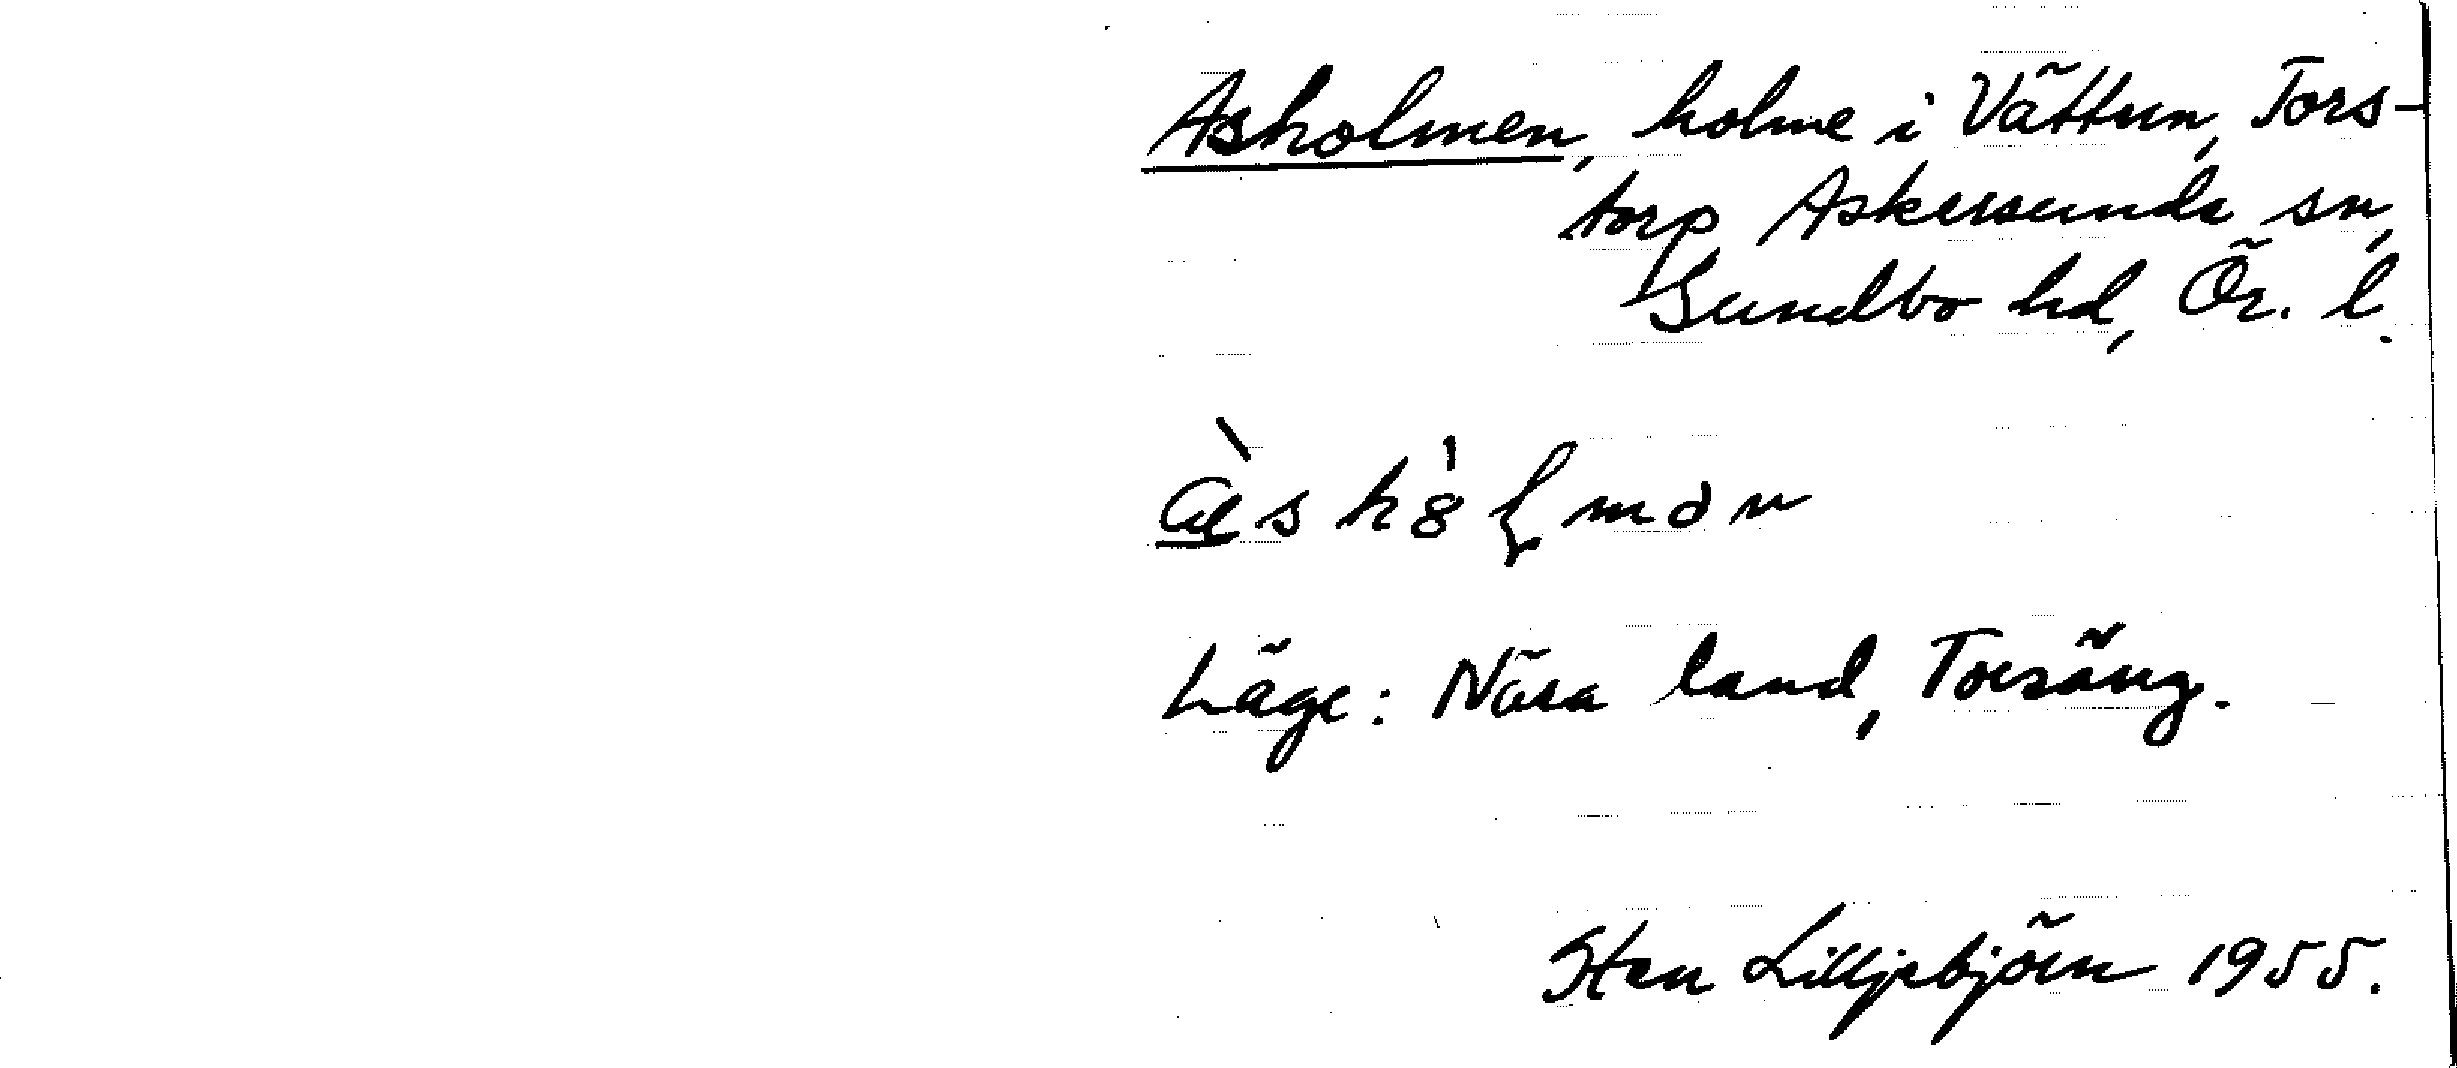 Asholmen, holme i Vättern, Tors-
torp, Askersunds sn,
Sundbo hd, Ör. l.
Läge: Nära land, Torsäng.
Sten Lilljebjörn 1955.